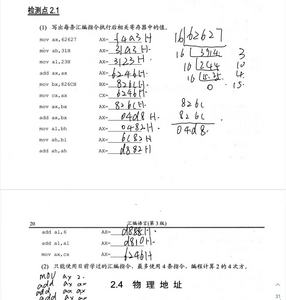 检测点 2.1
(1) 写出每条汇编指令执行后相关寄存器中的值。
mov ax,62627 AX= f4a3H
mov ah,31H AX= 31a3H
mov al,23H AX= 3123H
add ax,ax AX= 6246H
mov bx,826CH BX= 826CH
mov cx,ax CX= 6246H
mov ax,bx AX= 826CH
add ax,bx AX= 04d8H
mov al,bh AX= 0482H
mov ah,bl AX= 6c82H
add ah,ah AX= d882H
16 62627
16 3914 3
16 244 10
16 15 4
0 15
826c
826c
04d8
20 汇编语言(第3版)
add al,6 AX= d888H
add al,al AX= d810H
mov ax,cx AX= 6246H
(2) 只能使用目前学过的汇编指令，最多使用4条指令，编程计算2的4次方。
mov ax 2.
add ax ax
add ax ax
add ax ax
2.4 物理地址